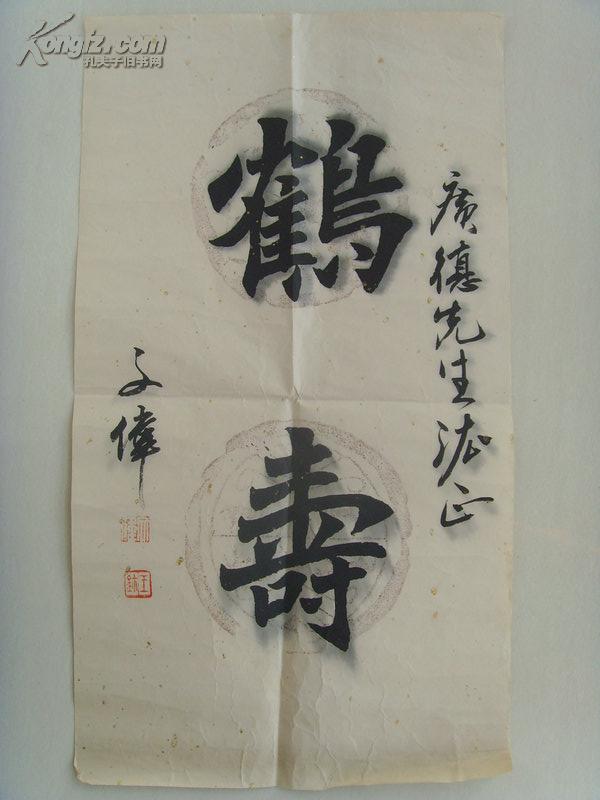 Kongfz.com
孔夫子旧书网
廣德先生法正
鶴
壽
文偉